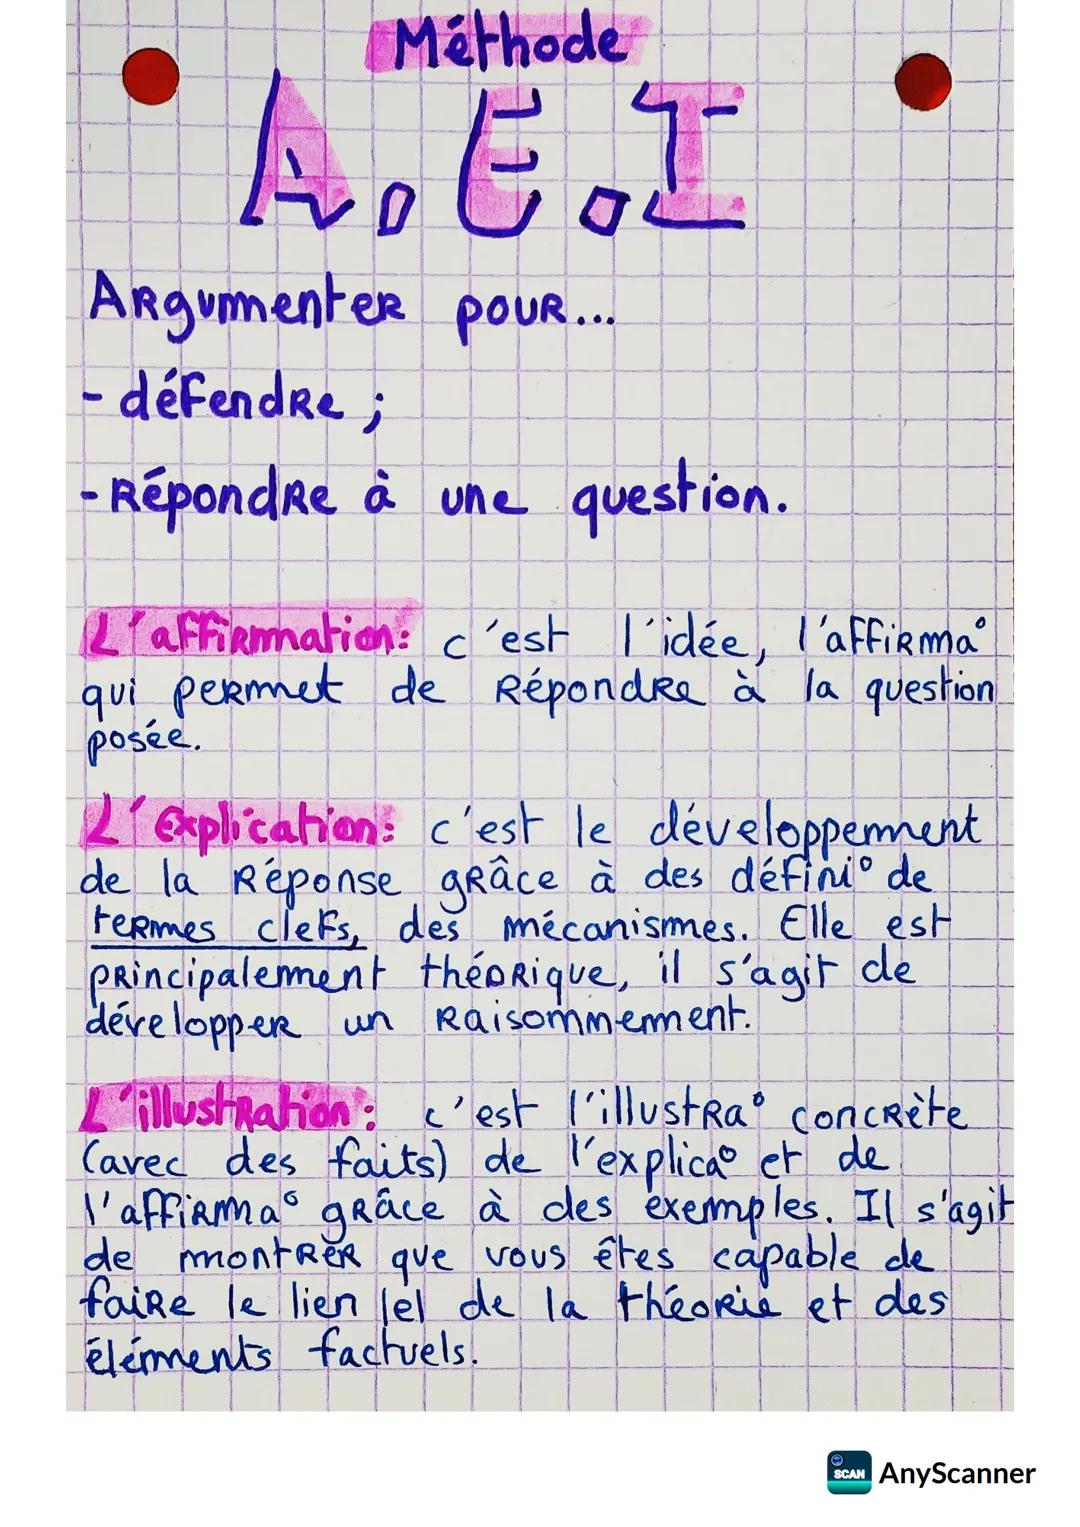 Méthode
A.E.I
Argumenter pour...
- défendre ;
- Répondre à une question.
L'affirmation: c'est l'idée, l'affirma°
qui permet de Répondre à la question
posée.
L'Explication: c'est le développement
de la Réponse grâce à des défini° de
termes clefs, des mécanismes. Elle est
principalement théorique, il s'agit de
développer un Raisonnement.
L'illustration: c'est l'illustra° concrète
(avec des faits) de l'explica° et de
l'affirma° grâce à des exemples. Il s'agit
de montrer que vous êtes capable de
faire le lien |e| de la théorie et des
éléments factuels.
SCAN AnyScanner